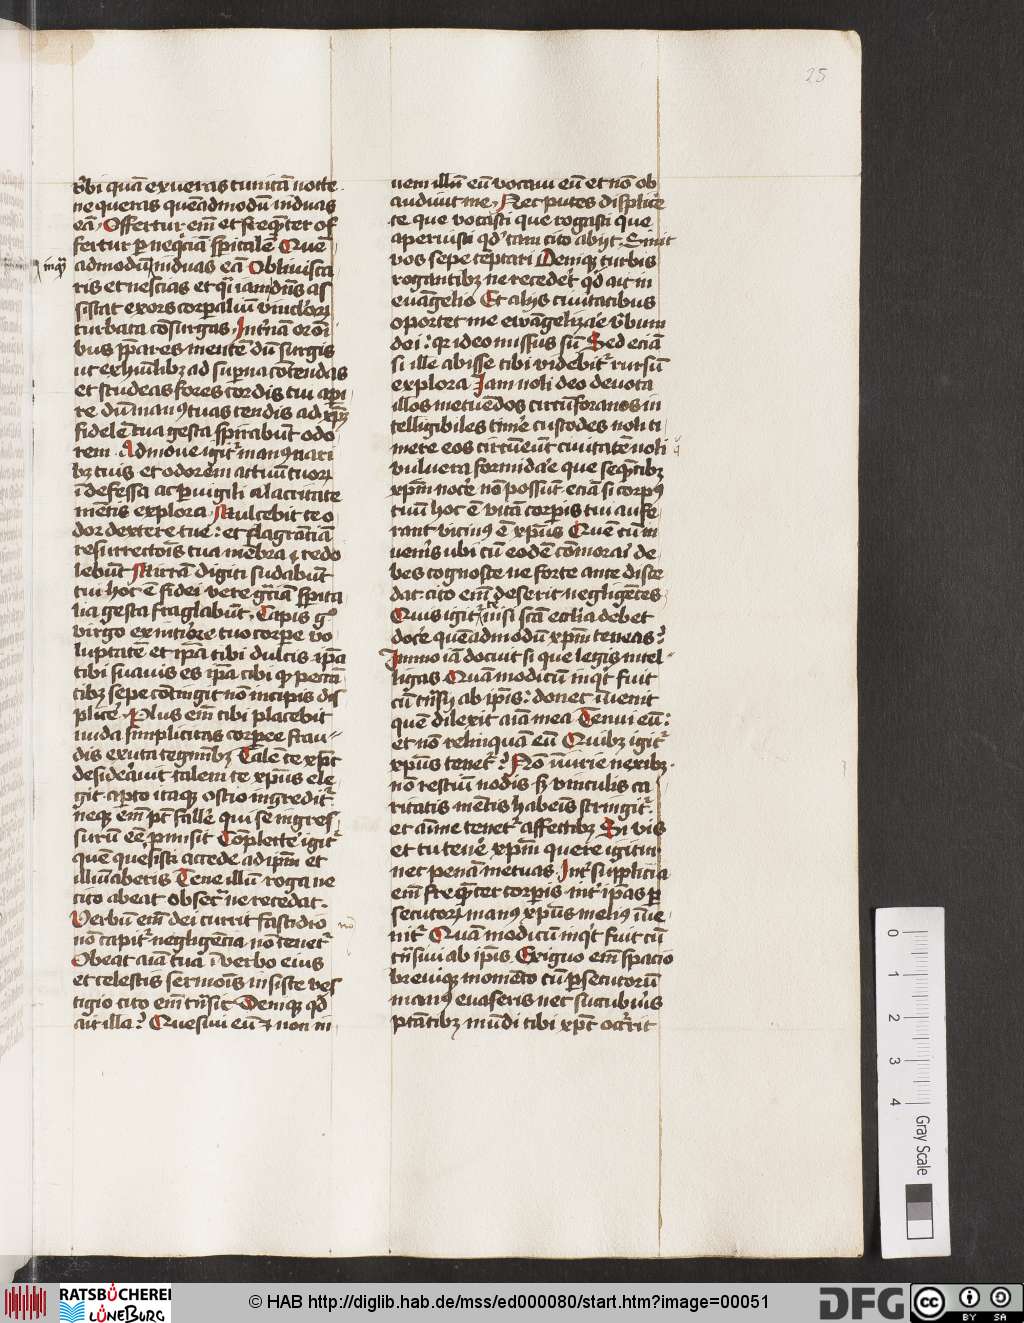 25
v̄bi quā exueras tunicā nocte
ne queras quēadmodū induas
eā Offertur em̄ et freq̄nter of
fertur ꝑ neq̄ciā sp̄italē Quē
admodū induas eā Obliuisca
inq̄
ris et nescias et q̄i iam dn̄s as
sistat exors corꝑaliū vinclōꝝ
turbata cōsurgas Int̄nā or oī
bus p̄pares mentē dū surgis
ut ex huīlibꝫ ad suꝑna cōtendas
et studeas fores cordis tui api
re dū manꝰ tuas tendis ad xp̄m
fidelē tua gesta spirabūt odo
rem Admoue igit̄ manꝰ nari
bꝫ tuis et odorem actuū tuoꝝ
īdefessa ac ꝑuigili alacritate
mētis explora Mulcebit te o
dor dextere tue et flagrātiā
resurrectōis tua mēbra redo
lebūt Mirrā digiti sudabūt
tui hoc ē fidei vere gr̄ciā sp̄ita
lia gesta fraglabūt Capis gͦ
virgo ex intīōre tuo corpe vo
luptatē et ip̄a tibi dulcis ip̄a
tibi suauis es ip̄a tibi qͥ peccā
tibꝫ sepe cōtingit nō incipis dis
plicē Plus em̄ tibi placebit
nuda simplicitas corpee frau
dis exuta tegmībꝫ Talē te xp̄c
desiderauit talem te xp̄us ele
git aꝑto itaqꝫ ostio ingredit̄
neqꝫ em̄ pt̄ fallē qui se ingres
surū eē ꝓmisit Cōplectē igit̄
quē quesisti accede ad ip̄m et
illūīaberis Tene illū roga ne
cito abeat obsec̄ ne recedat
Verbū em̄ dei currit fastidio
nō capit̄ negligēcia nō tenet̄
nō
Obeat aīa tua ī verbo eius
et celestis sermōis insiste ves
tigio cito em̄ trn̄sit Deniqꝫ qd̄
ait illa Quesiui eū et non in
ueni illū eū vocaui eū et nō ob
audiuit me Nec putes displicē
te que vocasti que rogasti que
aperuisti qd̄ tam cito abijt Sinit
vos sepe tēptari Deniqꝫ turbis
rogantibꝫ ne recedet̄ qd̄ ait in
euāngelio Et alijs ciuitatibus
oportet me ewāngelizāe v̄bum
dei qꝛ ideo missus sū Sed eciā
si ille abisse tibi videbit̄ rursū
explora Iam noli deo deuota
illos metuēdos circūforanos in
telligibiles timē custodes noli ti
mere eos circūeūt ciuitatē noli
vulnera formidāe que seq̄ntibꝫ
xp̄m nocē nō possūt eciā si corpꝰ
tuū hoc ē vitā corꝑis tui aufe
rant vicinꝰ ē xp̄us Quē cū in
uenīs ubi cū eodē cōmorari de
bes cognosce ne forte ante disce
dat cito em̄ deserit negligētes
Quis igit̄ nisi scā eccl̄ia debet
docē quēadmodū xp̄m teneas
Immo iā docuit si que legis intel
ligas Quā modicū inqͥt fuit
cū trn̄sij ab ip̄is donec īuenit
quē dilexit aīa mea Tenui eū
et nō relinquā eū Quibꝫ igit̄
xp̄us tenet̄ Nō īiurie nexibꝫ
nō restiū nodis sꝫ vinculis ca
ritatis mētis habenis stringit̄
et aīme tenet̄ affectibꝫ Si vis
et tu tenē xp̄m quere igitur
nec penā metuas Int̄ supplicia
em̄ freq̄nter corꝑis int̄ ip̄as ꝑ
secutoꝝ manꝰ xp̄us meliꝰ īue
nit̄ Quā modicū inqͥt fuit cū
trn̄siui ab ip̄is Exiguo em̄ spacio
breuiqꝫ momēto cū ꝑsecutorū
manꝰ euaseris nec sucubuis
ptātibꝫ mūdi tibi xp̄c occ̄rit
0 1 2 3 4
Gray Scale
RATSBÜCHEREI LÜNEBURG
© HAB http://diglib.hab.de/mss/ed000080/start.htm?image=00051
DFG
CC BY SA